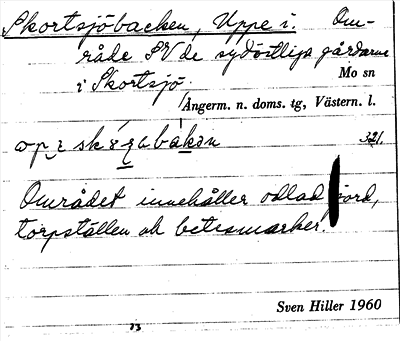 Skortsjöbacken, Uppe i. Om-
råde SV de sydöstliga gårdarna
i Skortsjö.
Mo sn
Ångerm. n. doms. tg, Västern. l.
321.
Området innehåller odlad jord,
torpställen och betesmarker.
Sven Hiller 1960
73